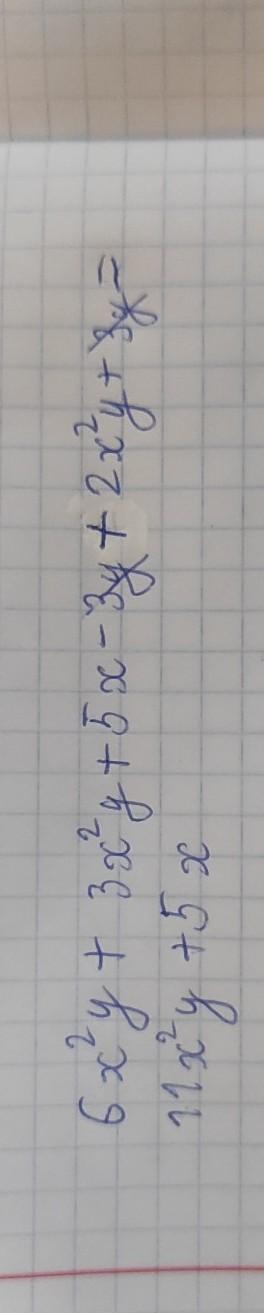 6x²y + 3x²y + 5x - 3y + 2x²y + 3y =
11x²y + 5x